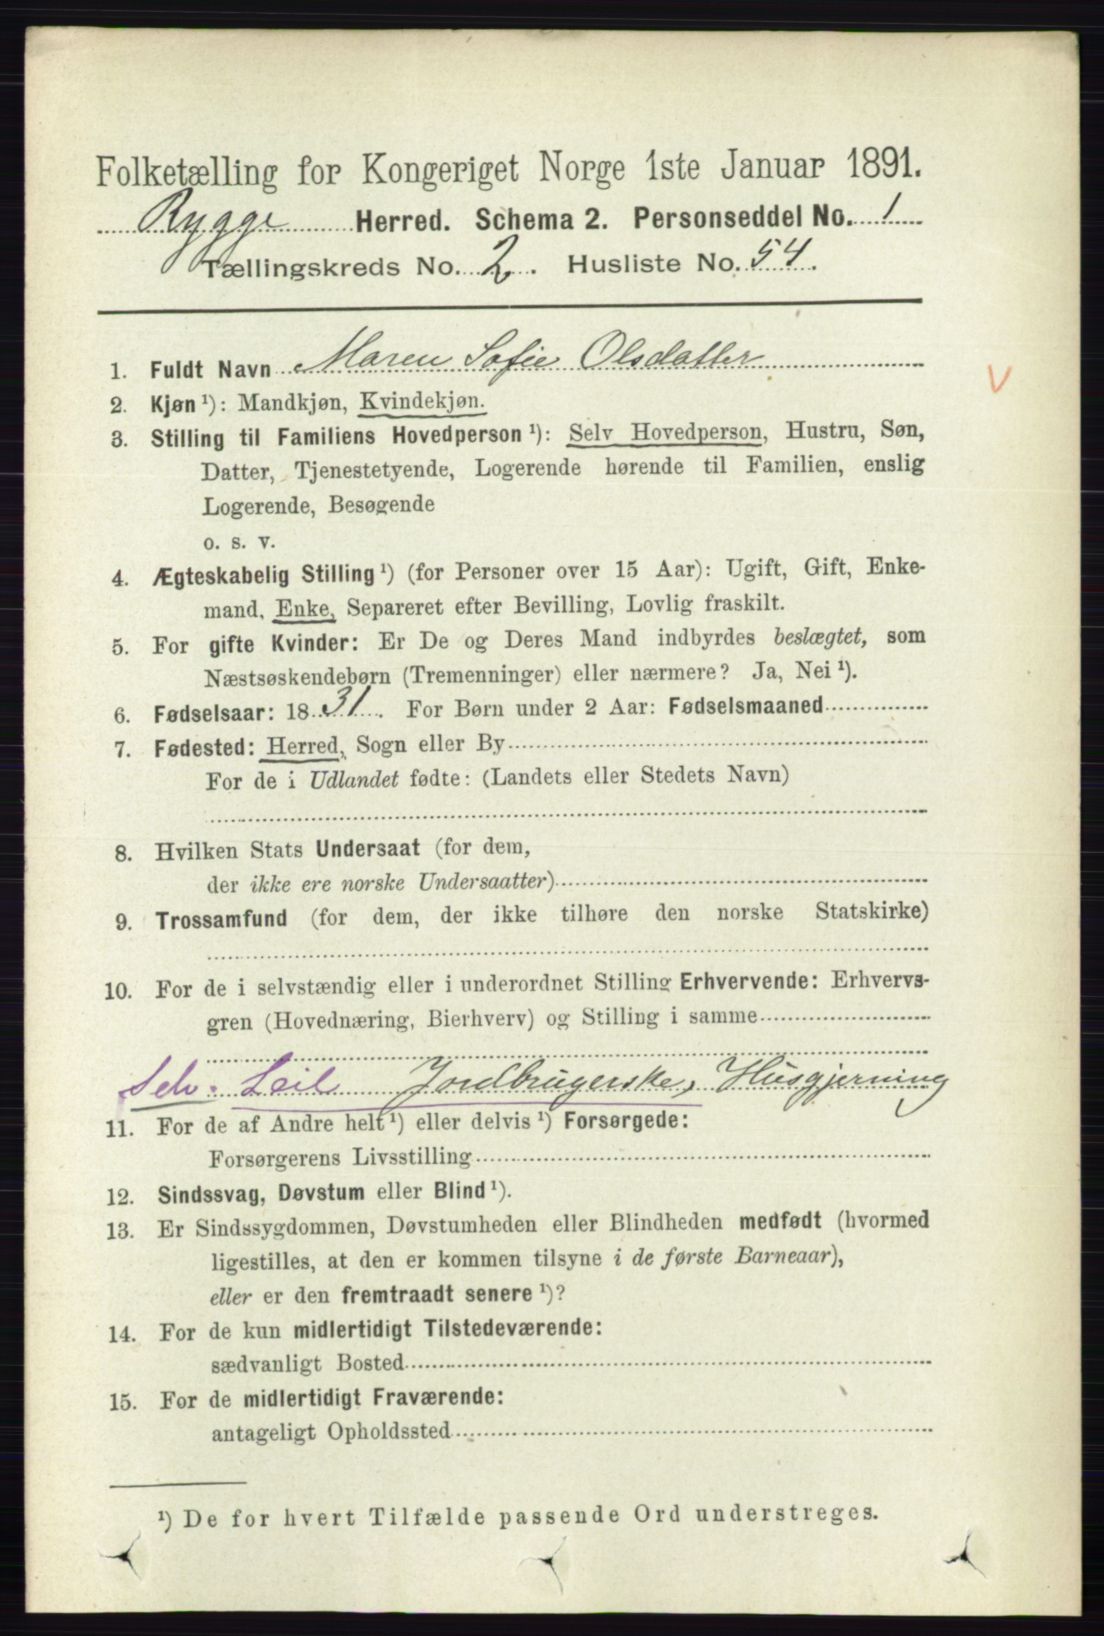 Folketælling for Kongeriget Norge 1ste Januar 1891.
Rygge Herred. Schema 2. Personseddel No. 1
Tællingskreds No. 2. Husliste No. 54.
1. Fuldt Navn Maren Sofie Olsdatter
2. Kjøn ¹): Mandkjøn, Kvindekjøn.
3. Stilling til Familiens Hovedperson ¹): Selv Hovedperson, Hustru, Søn,
Datter, Tjenestetyende, Logerende hørende til Familien, enslig
Logerende, Besøgende
o. s. v.
4. Ægteskabelig Stilling ¹) (for Personer over 15 Aar): Ugift, Gift, Enke-
mand, Enke, Separeret efter Bevilling, Lovlig fraskilt.
5. For gifte Kvinder: Er De og Deres Mand indbyrdes beslægtet, som
Næstsøskendebørn (Tremenninger) eller nærmere? Ja, Nei ¹).
6. Fødselsaar: 1831. For Børn under 2 Aar: Fødselsmaaned
7. Fødested: Herred, Sogn eller By
For de i Udlandet fødte: (Landets eller Stedets Navn)
8. Hvilken Stats Undersaat (for dem,
der ikke ere norske Undersaatter)
9. Trossamfund (for dem, der ikke tilhøre den norske Statskirke)
10. For de i selvstændig eller i underordnet Stilling Erhvervende: Erhvervs-
gren (Hovednæring, Bierhverv) og Stilling i samme
Selv. Leil Jordbrugerske, Husgjerning
11. For de af Andre helt ¹) eller delvis ¹) Forsørgede:
Forsørgerens Livsstilling
12. Sindssvag, Døvstum eller Blind ¹).
13. Er Sindssygdommen, Døvstumheden eller Blindheden medfødt (hvormed
ligestilles, at den er kommen tilsyne i de første Barneaar),
eller er den fremtraadt senere ¹)?
14. For de kun midlertidigt Tilstedeværende:
sædvanligt Bosted
15. For de midlertidigt Fraværende:
antageligt Opholdssted
¹) De for hvert Tilfælde passende Ord understreges.